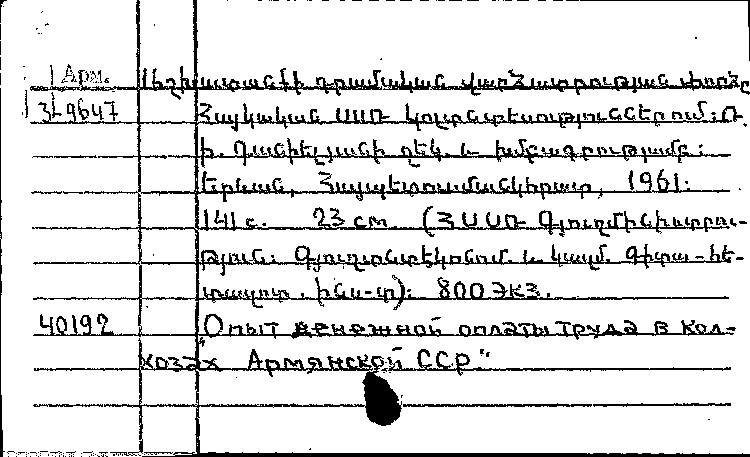 Арм. Աշխատանքի դրամական վարձատրության փորձը
3-9647 Հայկական ՍՍՌ կոլտնտեսություններում: Ռ.
Խ. Դանիելյանի ղեկ. և խմբագրությամբ:
Երևան, Հայպետհրատ, 1961:
141 с. 23 cm. (ՀՍՍՌ Գյուղմինիստրու-
թյուն: Գյուղատնտէկոնոմ. և կազմ. գիտա-հե-
տազոտ. ինս-տ): 800 экз.
40192 "Опыт денежной оплаты труда в кол-
хозах Армянской ССР."